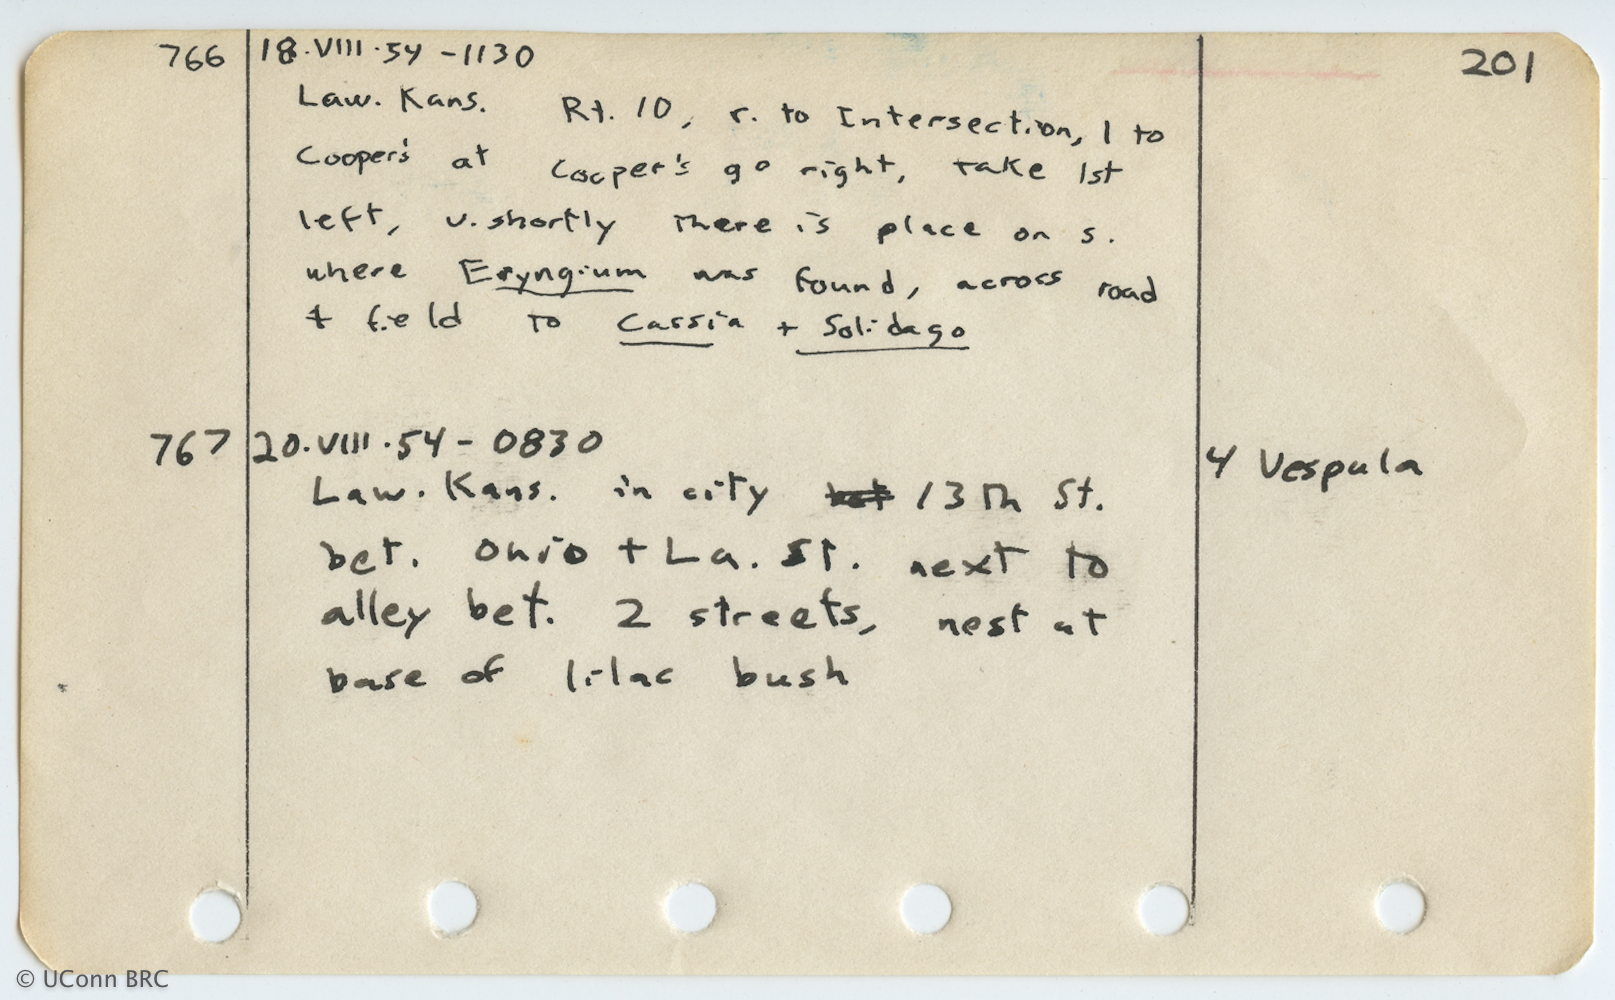 766 18.VIII.54 - 1130 201
Law. Kans. Rt. 10, r. to Intersection, l to
Cooper's at Cooper's go right, take 1st
left, v. shortly there is place on s.
where Eryngium was found, across road
+ field to Cassia + Solidago
767 20.VIII.54 - 0830
4 Vespula
Law. Kans. in city 13th St.
bet. Ohio + La. St. next to
alley bet. 2 streets, nest at
base of lilac bush
© UConn BRC